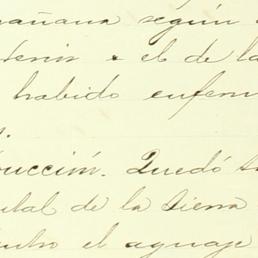 mañana según
tenis e el de la
habido enferm
s.
ucción. Quedó t
ital de la Sierra
entro el aguaje